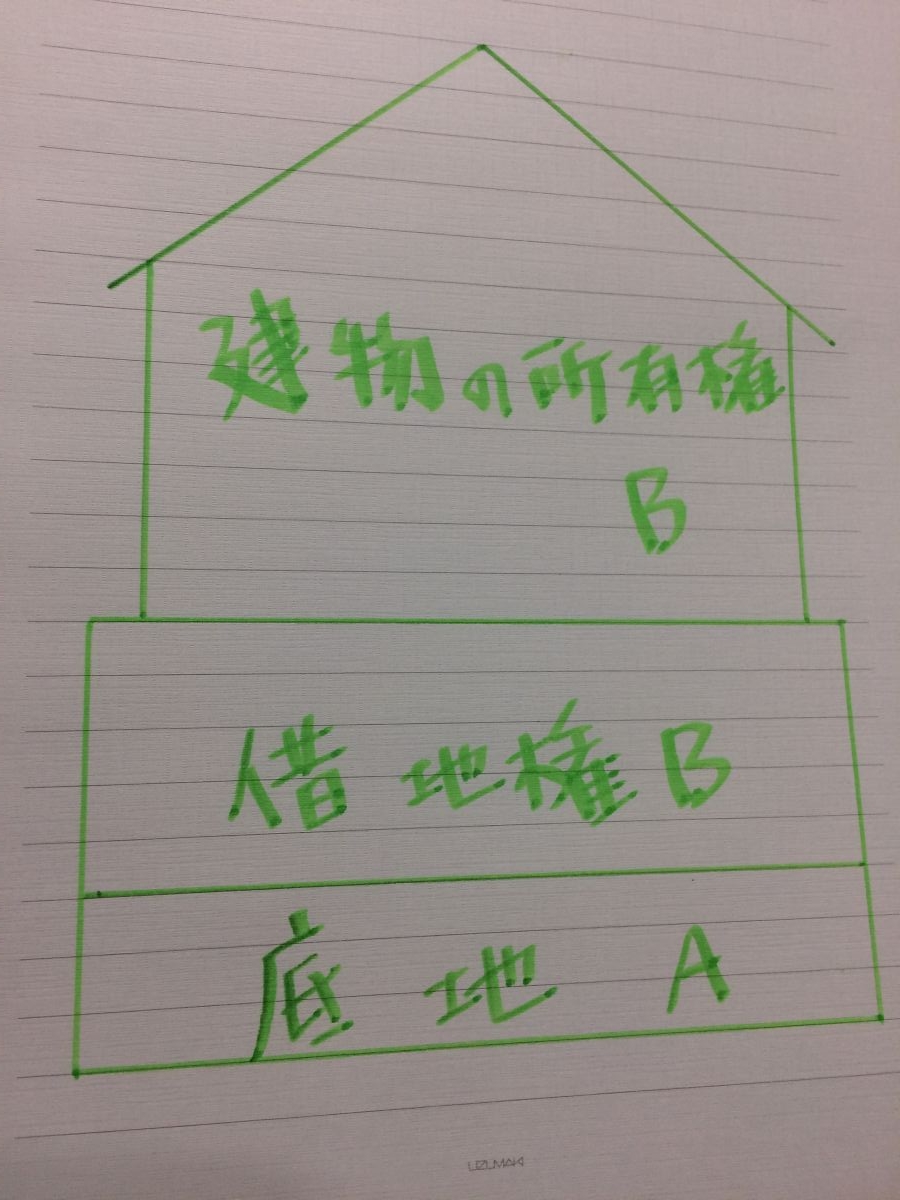 建物の所有権
B
借地権 B
底地 A
UZUMAKI